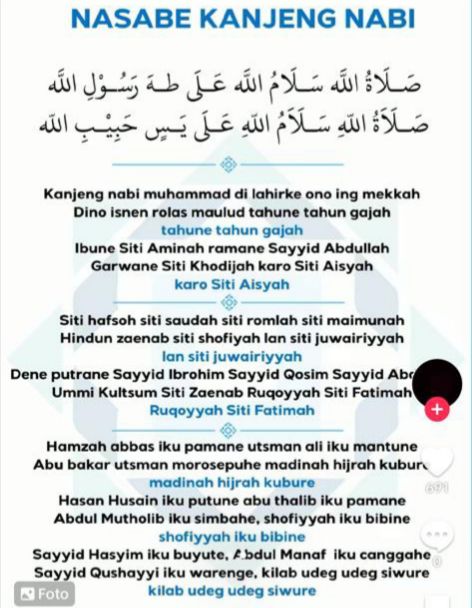 NASABE KANJENG NABI
صَلَاةُ اللهِ سَلَامُ اللهِ عَلَى طٰهَ رَسُوْلِ اللهِ
صَلَاةُ اللهِ سَلَامُ اللهِ عَلَى يٰسٍ حَبِيْبِ اللهِ
Kanjeng nabi muhammad di lahirke ono ing mekkah
Dino isnen rolas maulud tahune tahun gajah
tahune tahun gajah
Ibune Siti Aminah ramane Sayyid Abdullah
Garwane Siti Khodijah karo Siti Aisyah
karo Siti Aisyah
Siti hafsoh siti saudah siti romlah siti maimunah
Hindun zaenab siti shofiyah lan siti juwairiyyah
lan siti juwairiyyah
Dene putrane Sayyid Ibrohim Sayyid Qosim Sayyid
Ummi Kultsum Siti Zaenab Ruqoyyah Siti Fatimah
Ruqoyyah Siti Fatimah
Hamzah abbas iku pamane utsman ali iku mantune
Abu bakar utsman morosepuhe madinah hijrah kubure
madinah hijrah kubure
Hasan Husain iku putune abu thalib iku pamane
Abdul Mutholib iku simbahe, shofiyyah iku bibine
shofiyyah iku bibine
Sayyid Hasyim iku buyute, Abdul Manaf iku canggahe
Sayyid Qushayyi iku warenge, kilab udeg udeg siwure
kilab udeg udeg siwure
691
0
Foto